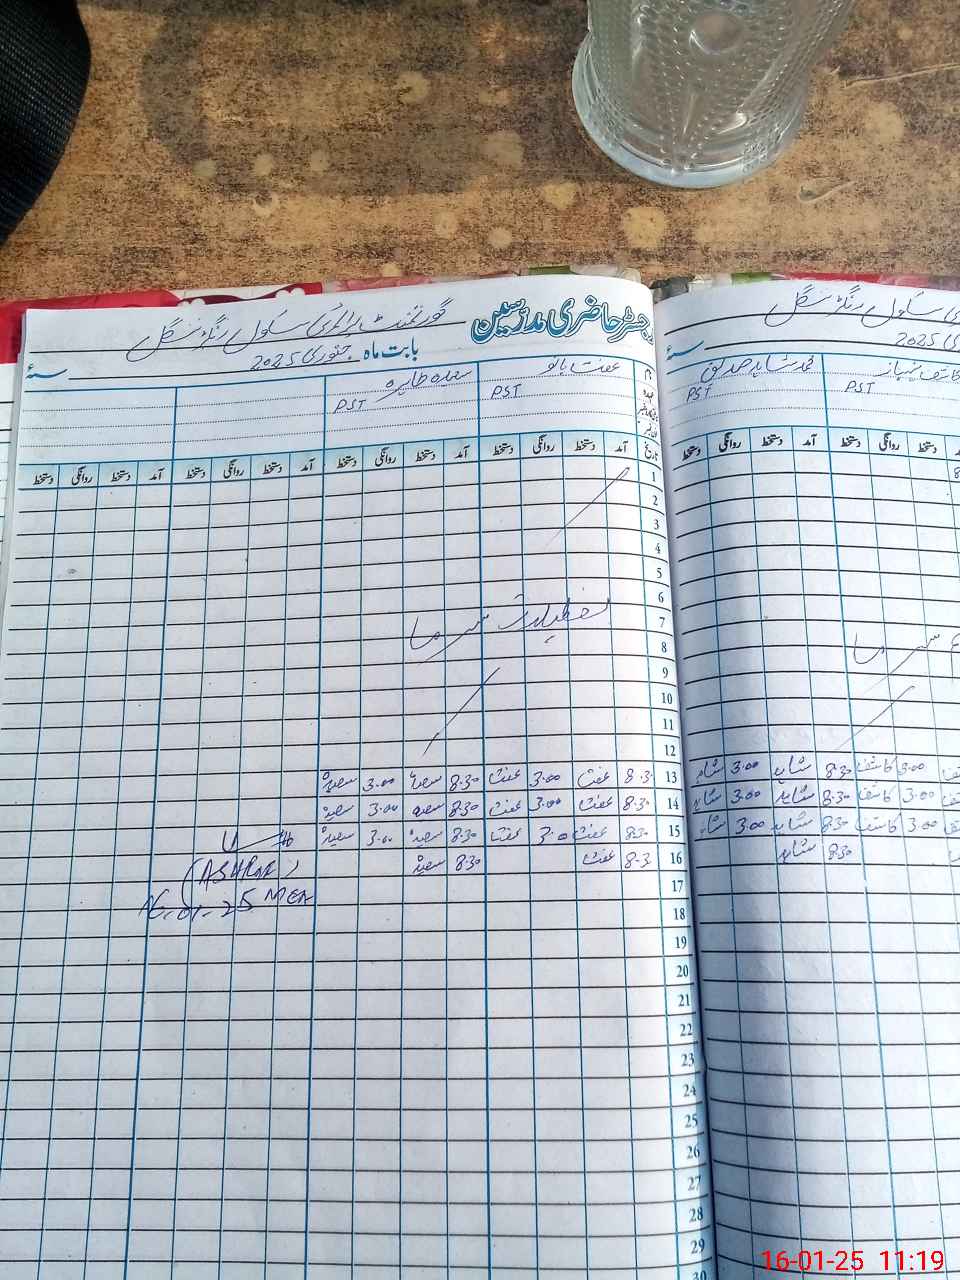 رجسٹر حاضری مدرسین
گورنمنٹ پرائمری سکول
بابت ماہ جنوری 2025
عفت بانو
سعدہ طاہرہ
PST
PST
تاریخ آمد دستخط روانگی دستخط آمد دستخط روانگی دستخط آمد دستخط روانگی دستخط آمد دستخط روانگی دستخط
1
2
3
4
5
6
7
تعطیلات سرما
8
9
10
11
12
13 8.3. عفت 3.00 عفت 8.30 سعدیہ 3.00 سعدیہ
14 8.30 عفت 3.00 عفت 8.30 سعدیہ 3.00 سعدیہ
15 8.30 عفت 3.0 عفت 8.30 سعدیہ 3.0. سعدیہ
16 8.3 عفت 8.30 سعدیہ
(ASHRAF)
MEA
16-01-25
17
18
19
20
21
22
23
24
25
26
27
28
29
30
سکول
2025
کاشف نیاز
محمد شاہد صدیق
PST
PST
روانگی دستخط آمد دستخط روانگی دستخط
سرما
3.00 کاشف 8.30 شاہد 3.00 شاہد
3.00 کاشف 8.30 شاہد 3.00 شاہد
3.00 کاشف 8.30 شاہد 3.00 شاہد
8.30 شاہد
16-01-25 11:19